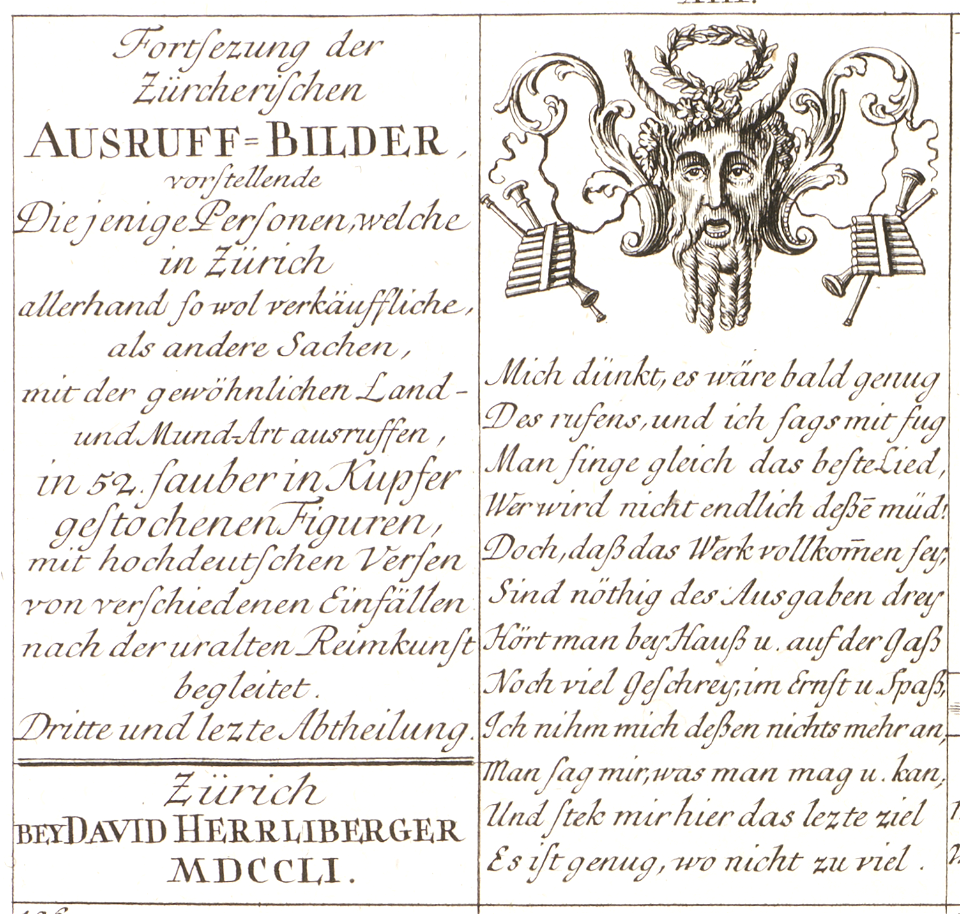 Fortſezung der
Zürcheriſchen
AUSRUFF=BILDER,
vorſtellende
Die jenige Perſonen, welche
in Zürich
allerhand ſo wol verkäuffliche,
als andere Sachen,
mit der gewöhnlichen Land-
und Mund-Art ausruffen,
in 52. ſauber in Kupfer
geſtochenen Figuren,
mit hochdeutſchen Verſen
von verſchiedenen Einfällen
nach der uralten Reimkunſt
begleitet.
Dritte und lezte Abtheilung.
Zürich
BEY DAVID HERRLIBERGER
MDCCLI.
Mich dünkt, es wäre bald genug
Des rufens, und ich ſags mit fug
Man ſinge gleich das beſte Lied,
Wer wird nicht endlich deßē müd!
Doch, daß das Werk vollkom̄en ſey,
Sind nöthig des Ausgaben drey
Hört man bey Hauß u. auf der Gaß
Noch viel Geſchrey, im Ernſt u. Spaß,
Ich nihm mich deßen nichts mehr an,
Man ſag mir, was man mag u. kan,
Und ſtek mir hier das lezte ziel
Es iſt genug, wo nicht zu viel.